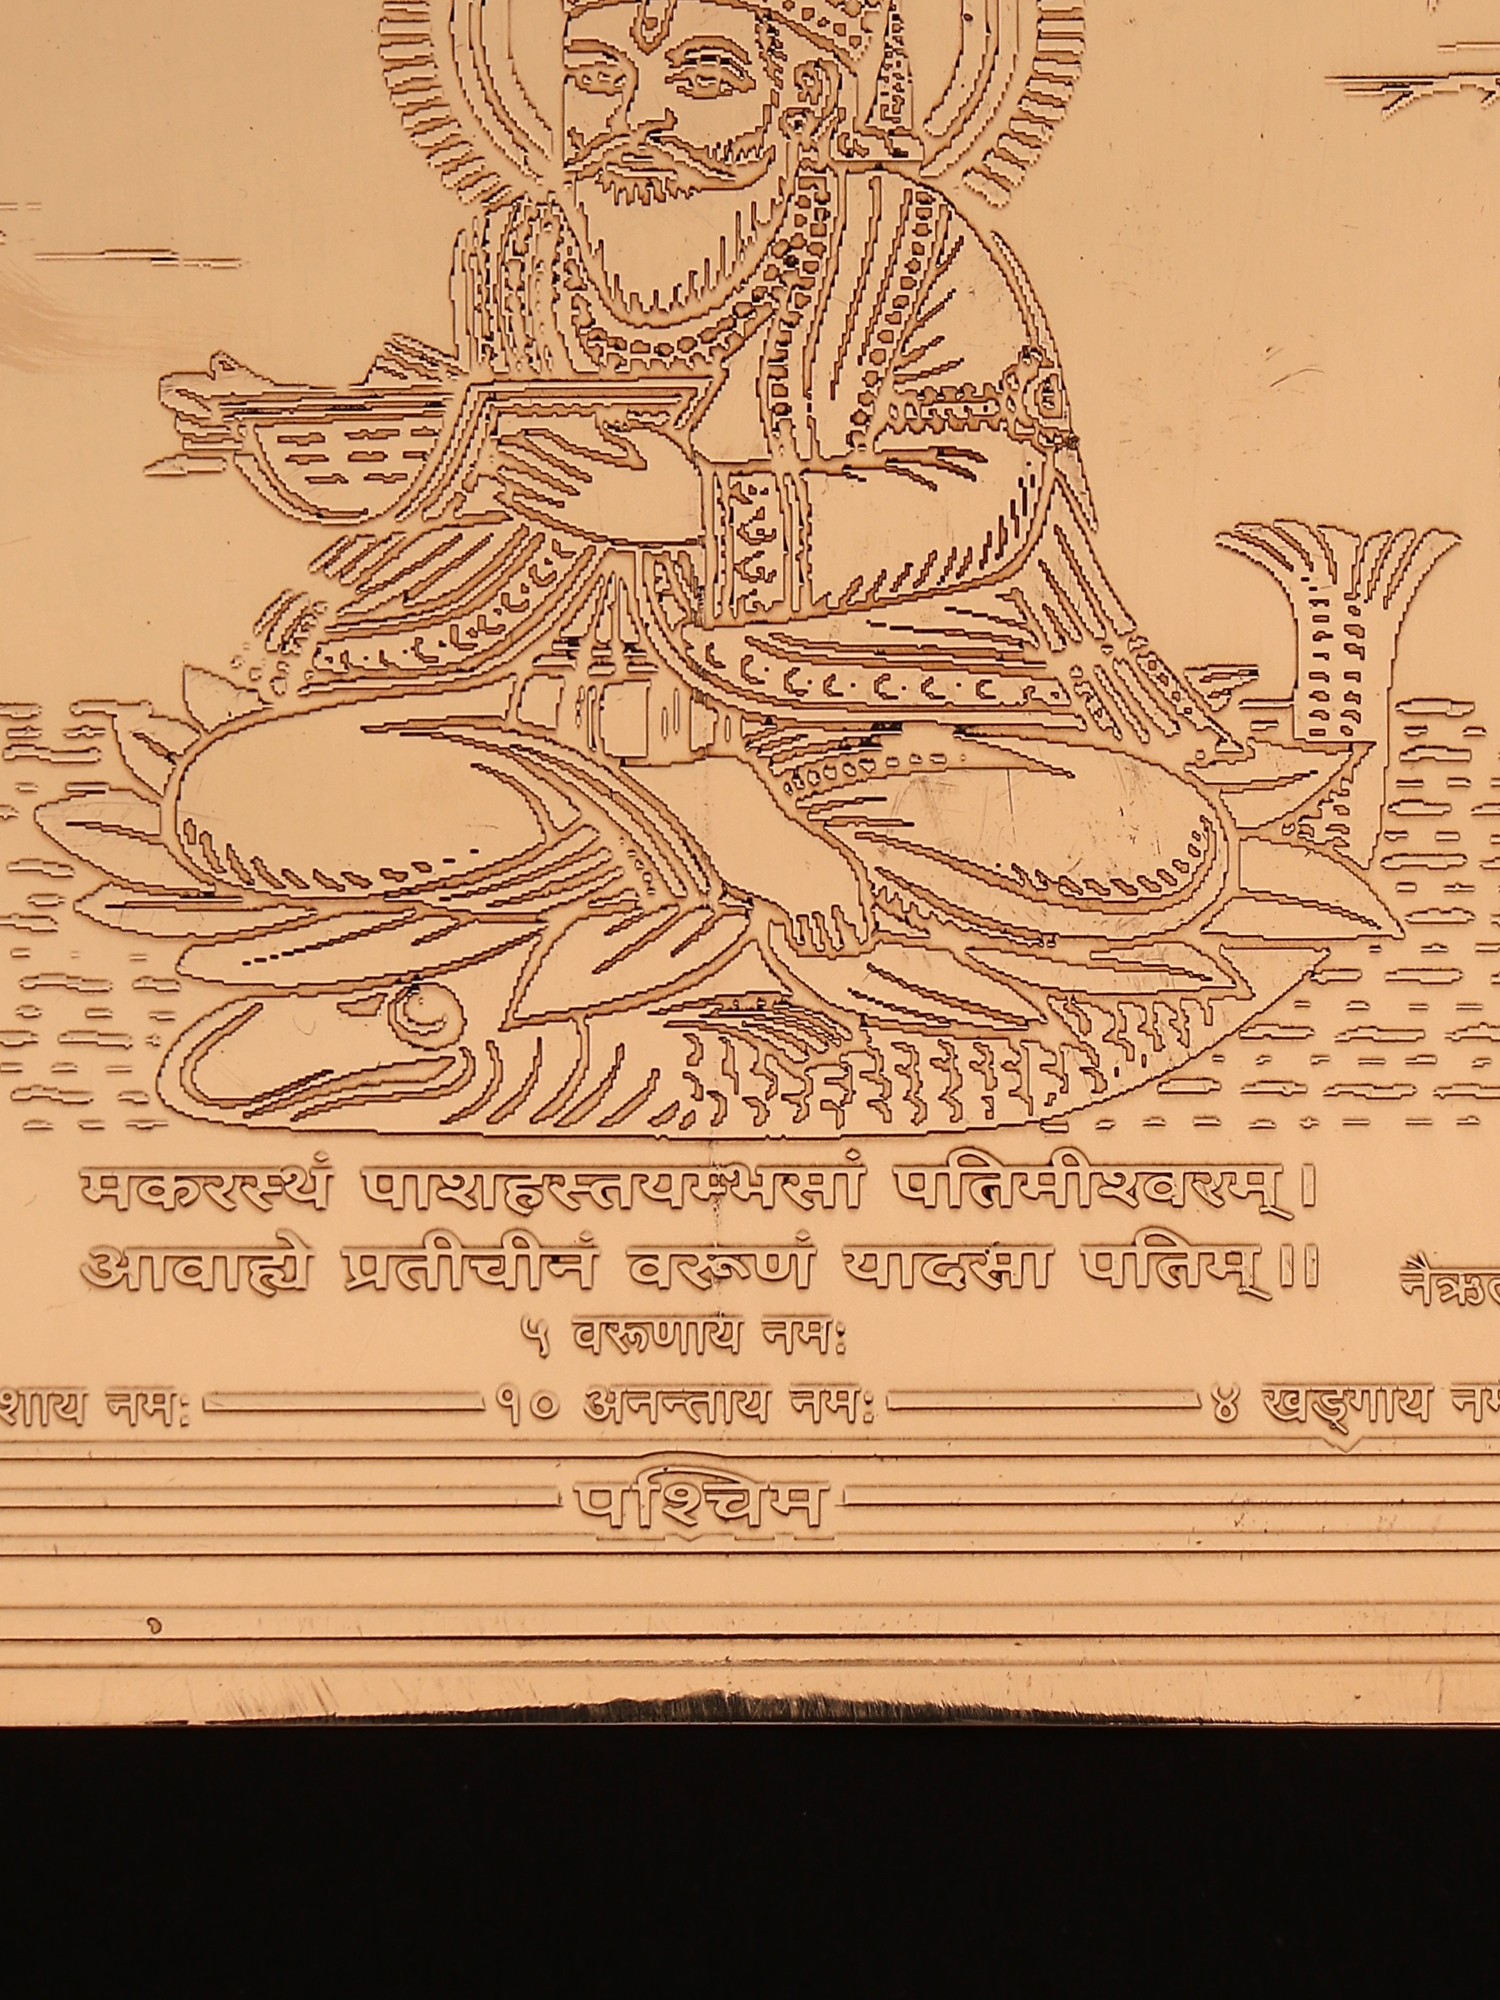 मकरस्थं पाशहस्तयम्भसां पतिमीश्वरम्।
आवाह्ये प्रतीचीनं वरूणं यादसा पतिम्॥
५ वरूणाय नमः
शाय नमः १० अनन्ताय नमः ४ खड्गाय नम
पश्चिम